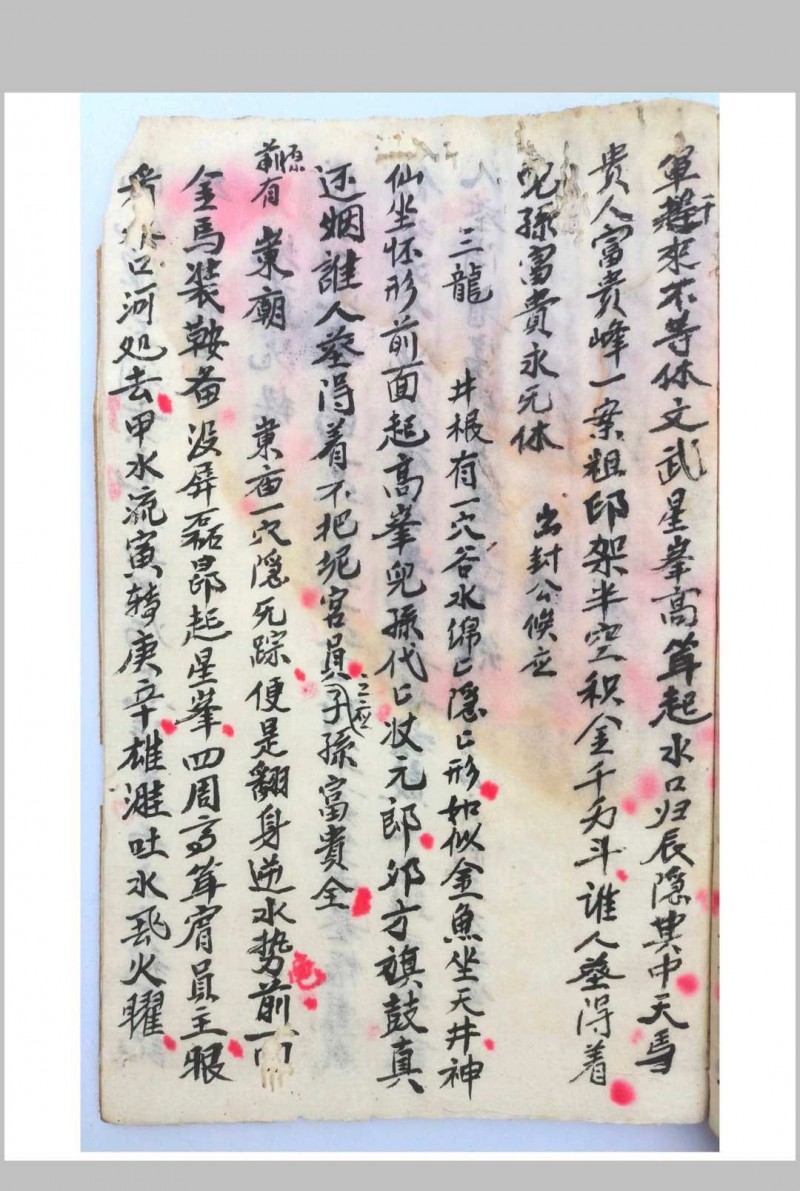 軍拜來不等休文武星峯高耸起水口归辰隐其中天馬
貴人富贵峰一案粗印架半空积金千為斗谁人葬得着
兒孫富貴永元休 出封公候应
三龍 井根有一穴谷水绵匕隐匕形如似金魚坐天井神
仙坐怀形前面起高峯兒孫代匕状元郎卯方旗鼓真
还姻誰人葬得着不把坭官員子孫富貴全
前有 東廟 東庙一穴隐死踪便是翻身逆水势前面
金馬装鞍备没屏磊昂起星峯四周高耸膺員主眼
口河处去甲水流寅转庚辛雄漄吐水丟火曜